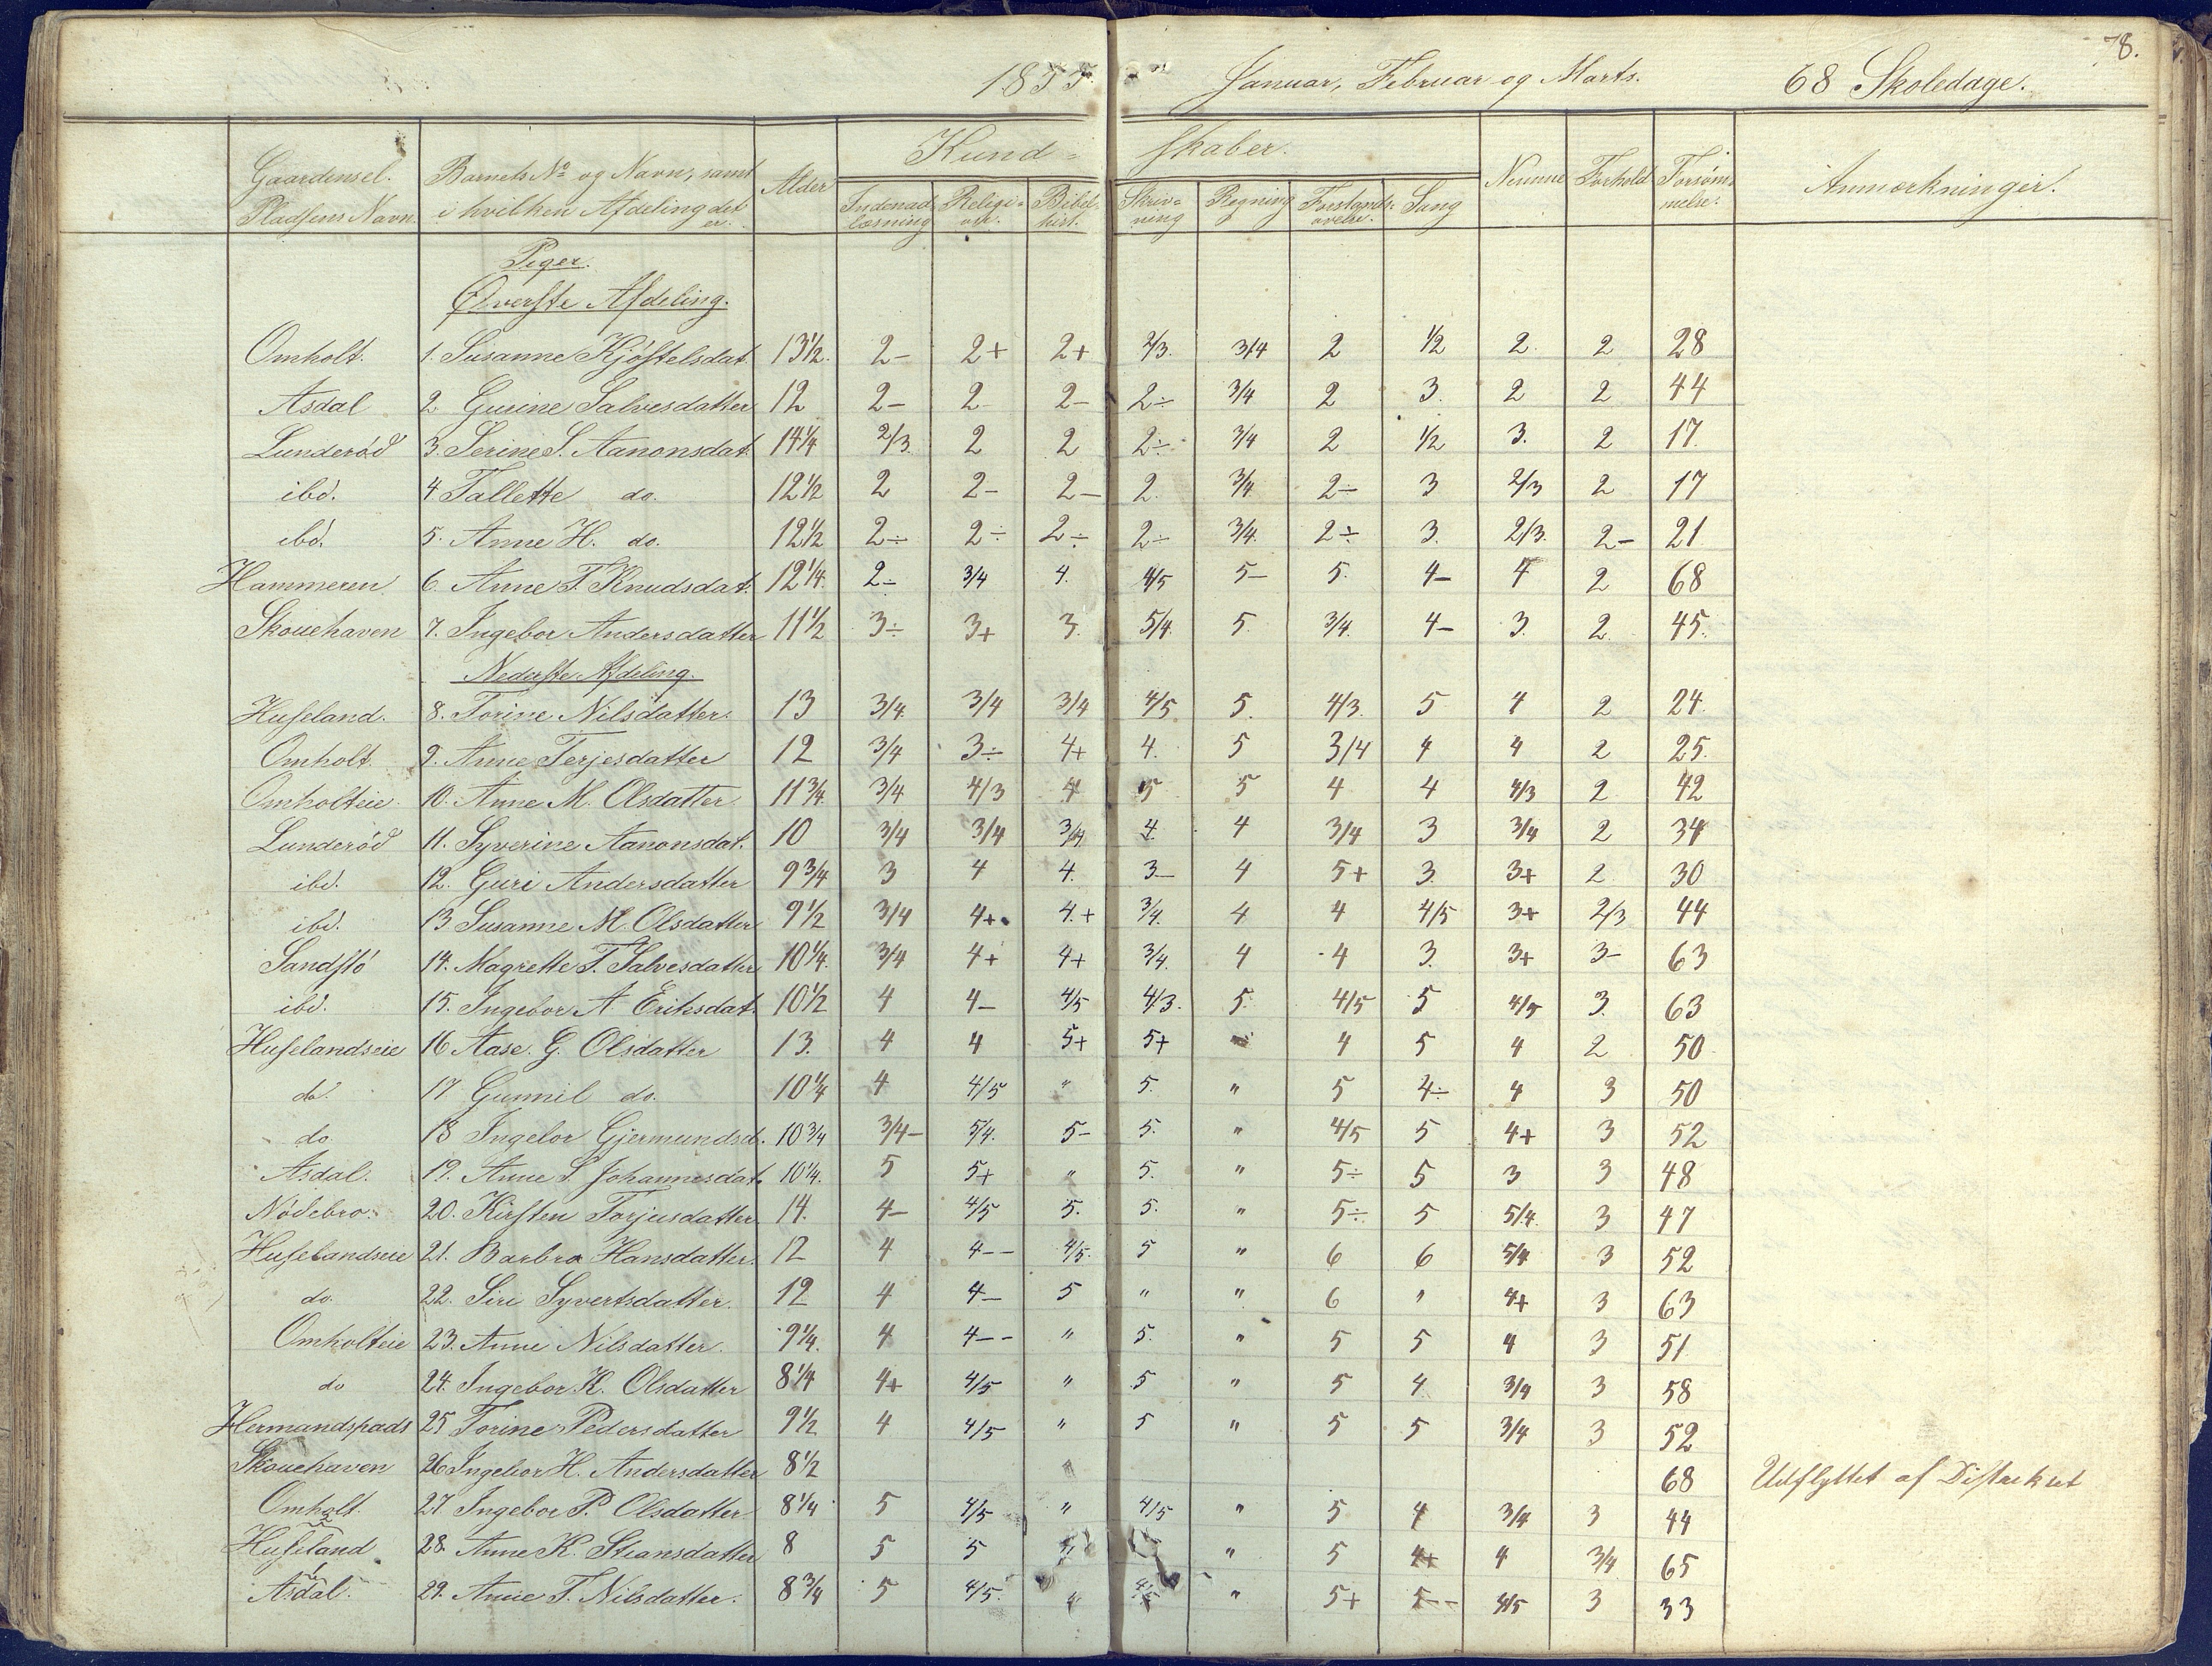 78.
1855 Januar, Februar og Marts. 68 Skoledage.
Gaardens el. Pladsens Navn | Barnets No og Navn, samt i hvilken Afdeling det er. | Alder | Kundskaber. | Nemme | Forhold | Forsømmelse. | Anmærkninger.
Indenadlæsning | Religion. | Bibelhist. | Skrivning | Regning | Forstandsøvelse. | Sang
Piger.
Øverste Afdeling.
Omholt. 1. Susanne Kjøstelsdat. 13 1/2. 2- 2+ 2+ 2/3. 3/4 2 1/2 2. 2 28
Asdal 2 Gurine Salvesdatter 12 2- 2 2- 2÷ 3/4 2 3. 2 2 44
Lunderød 3. Serine S. Aanonsdat. 14 1/4 2/3 2 2 2÷ 3/4 2 1/2 3. 2 17.
ibd. 4 Tallette do. 12 1/2 2 2- 2- 2. 3/4 2- 3 2/3 2 17
ibd. 5. Anne H. do. 12 1/2 2÷ 2÷ 2÷ 2÷ 3/4. 2÷ 3. 2/3. 2- 21
Hammeren 6. Anne T. Knudsdat. 12 1/4. 2÷ 3/4 4. 4/5 5- 5. 4- 4 2 68
Skouehaven 7. Ingebor Andersdatter 11 1/2 3÷ 3+ 3. 5/4 5 3/4. 4- 3. 2. 45.
Nederste Afdeling.
Huseland. 8. Torine Nilsdatter. 13 3/4. 3/4 3/4 4/5 5. 4/3. 5 4 2 24
Omholt. 9. Anne Terjesdatter 12 3/4 3÷ 4+ 4. 5 3/4 4 4 2 25.
Omholteie. 10. Anne M. Olsdatter 11 3/4. 3/4 4/3 4 5 5 4 4 4/3 2 42
Lunderød 11. Syverine Aanonsdat. 10 3/4 3/4 3/4 4. 4 3/4 3 3/4 2 34
ibd. 12. Guri Andersdatter 9 3/4 3 4 4. 3- 4 5+ 3. 3+ 2 30
ibd. 13 Susanne M. Olsdatter 9 1/2 3/4 4+ 4.+ 3/4. 4 4 4/5 3+ 2/3 44
Sandstø 14. Magrette T. Salvesdatter 10 1/4. 3/4 4+ 4+ 3/4. 4 4 3. 3+ 3- 63
ibd. 15. Ingebor A. Eriksdat. 10 1/2 4 4- 4/5 4/3. 5. 4/5 5 4/5 3. 63
Huselandseie 16 Aase. G. Olsdatter 13. 4 4 5+ 5+ 4 5 4 2 50
do. 17 Gunnil do. 10 1/4 4 4/5 " 5. " 5 4÷ 4 3 50
do. 18 Ingebor Gjermundsd. 10 3/4 3/4- 5/4. 5- 5. " 4/5 5 4+ 3 52
Asdal. 19. Anne S. Johannesdat. 10 1/4. 5 5+ " 5. " 5÷ 5 3 3 48
Nødebro. 20. Kirsten Torjusdatter. 14. 4- 4/5 5. 5. " 5÷ 5 5/4. 3 47
Huselandseie 21. Barbra Hansdatter. 12 4 4-- 4/5. 5 " 6 6 5/4 3 52
do. 22. Siri Syvertsdatter. 12 4 4- 5 " " 6 " 4+ 3 63
Omholteie 23. Anne Nilsdatter. 9 1/4. 4 4-- " 5. " 5 5 4 3 51
do 24. Ingebor K. Olsdatter 8 1/4 4+ 4/5 " 5 " 5 4 3/4 3 58
Hermandspads 25 Torine Pedersdatter 9 1/2 4 4/5 " 5 " 5 5 3/4 3 52
Skouehaven 26 Ingebor H. Andersdatter 8 1/2 68 Udflyttet af Distriktet
Omholt. 27. Ingebor P. Olsdatter. 8 1/4 5 4/5 " 4/5 " 5 4 3/4 3 44
Huseland 28. Anne K. Stiansdatter 8 5 5 " 5 4+ 4 3/4 65
Asdal. 29. Anne T. Nilsdatter. 8 3/4 5 4/5. " 4/5 " 5+ 5-- 4/5 3 33